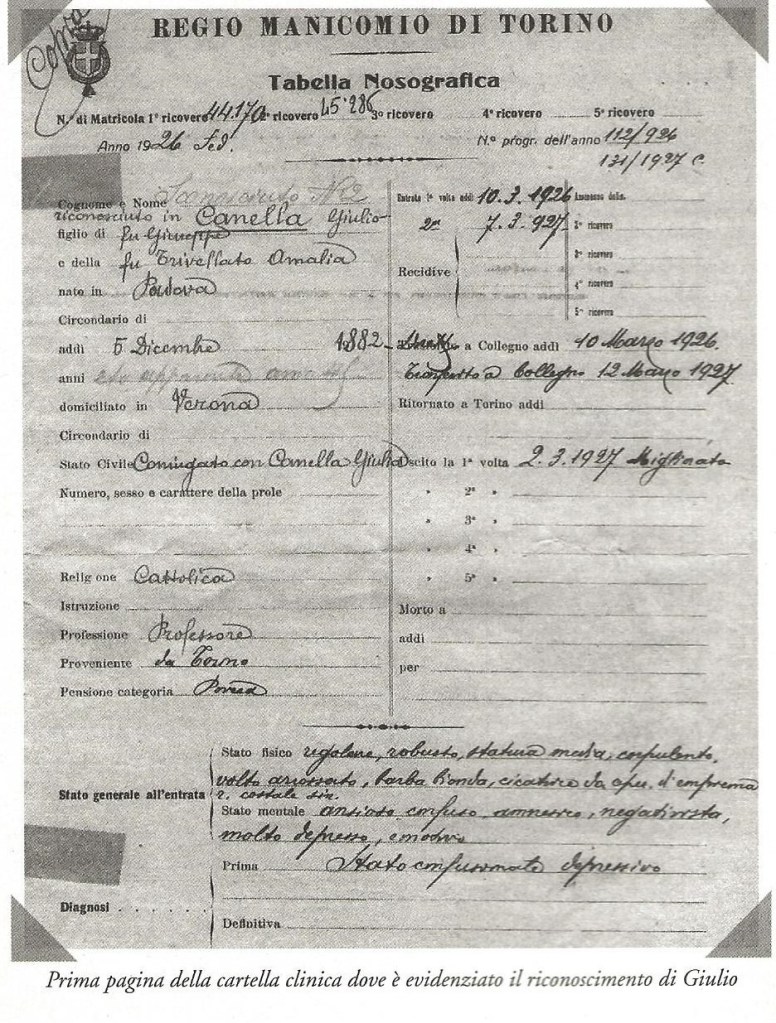 Copia
REGIO MANICOMIO DI TORINO
Tabella Nosografica
N.° di Matricola 1° ricovero 44.170 2° ricovero 45.286 3° ricovero 4° ricovero 5° ricovero
Anno 1926 Fed. N.° progr. dell'anno 112/926
131/1927 C.
Cognome e Nome Sconosciuto N. 2
riconosciuto in Canella Giulio
figlio di fu Giuseppe
e della fu Trivellato Amalia
nato in Padova
Circondario di
addì 5 Dicembre 1882
anni età apparente anni 45
domiciliato in Verona
Circondario di
Stato Civile Coniugato con Canella Giulia
Numero, sesso e carattere della prole
Religione Cattolica
Istruzione
Professione Professore
Proveniente da Torino
Pensione categoria
Entrata 1ª volta addì 10.3.1926 Ammesso defin.
2ª 7.3.927 1° ricovero
Recidive 3° ricovero
4° ricovero
5° ricovero
a Collegno addì 10 Marzo 1926.
Trasferito a Collegno 12 Marzo 1927.
Ritornato a Torino addì
Uscito la 1ª volta 2.3.1927 Migliorato
" 2ª "
" 3ª "
" 4ª "
" 5ª "
Morto a
addì
per
Stato generale all'entrata
Stato fisico regolare, robusto, statura media, corpulento,
volto arrossato, barba bionda, cicatrice da op. d'empiema
r. costale sin.
Stato mentale ansioso confuso amnesico, negativista,
molto depresso, emotivo
Diagnosi
Prima Stato confusionale depressivo
Definitiva
Prima pagina della cartella clinica dove è evidenziato il riconoscimento di Giulio